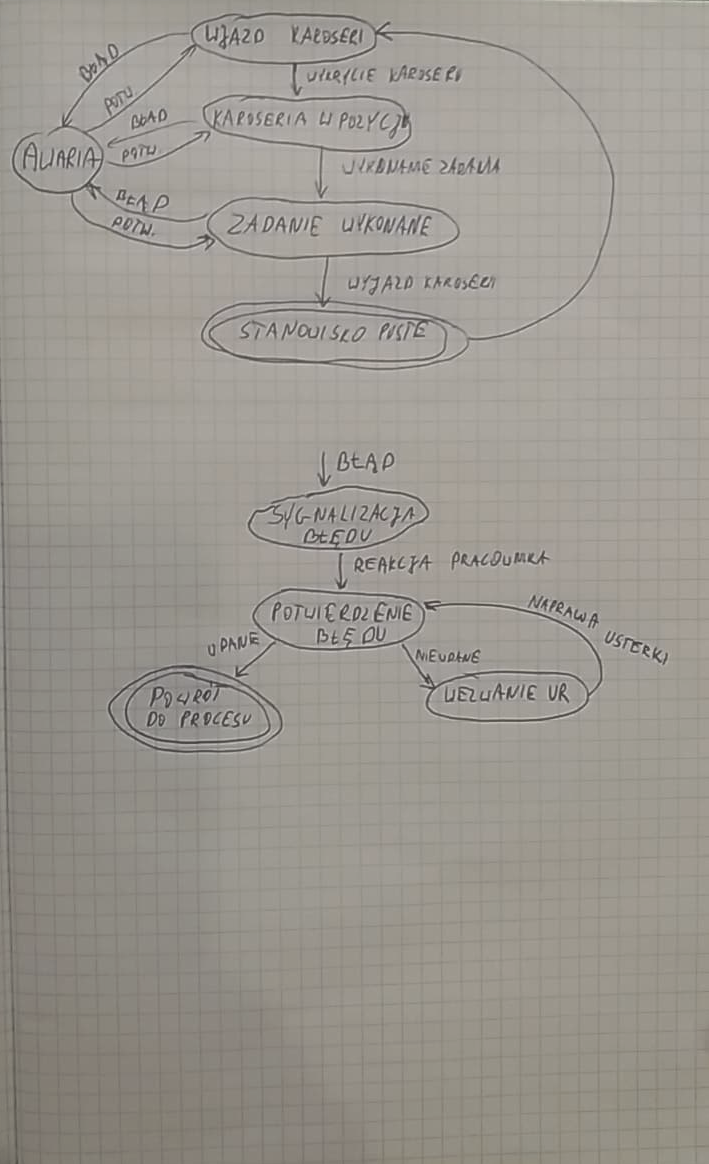 WJAZD KAROSERI
BŁĄD
WYKRYCIE KAROSERI
POTW.
BŁĄD
KAROSERIA W POZYCJI
AWARIA
POTW.
WYKONANIE ZADANIA
BŁĄD
POTW.
ZADANIE WYKONANE
WYJAZD KAROSERI
STANOWISKO PUSTE
BŁĄD
SYGNALIZACJA
BŁĘDU
REAKCJA PRACOWNIKA
POTWIERDZENIE
BŁĘDU
NAPRAWA USTERKI
UDANE
NIEUDANE
POWRÓT
DO PROCESU
WEZWANIE UR